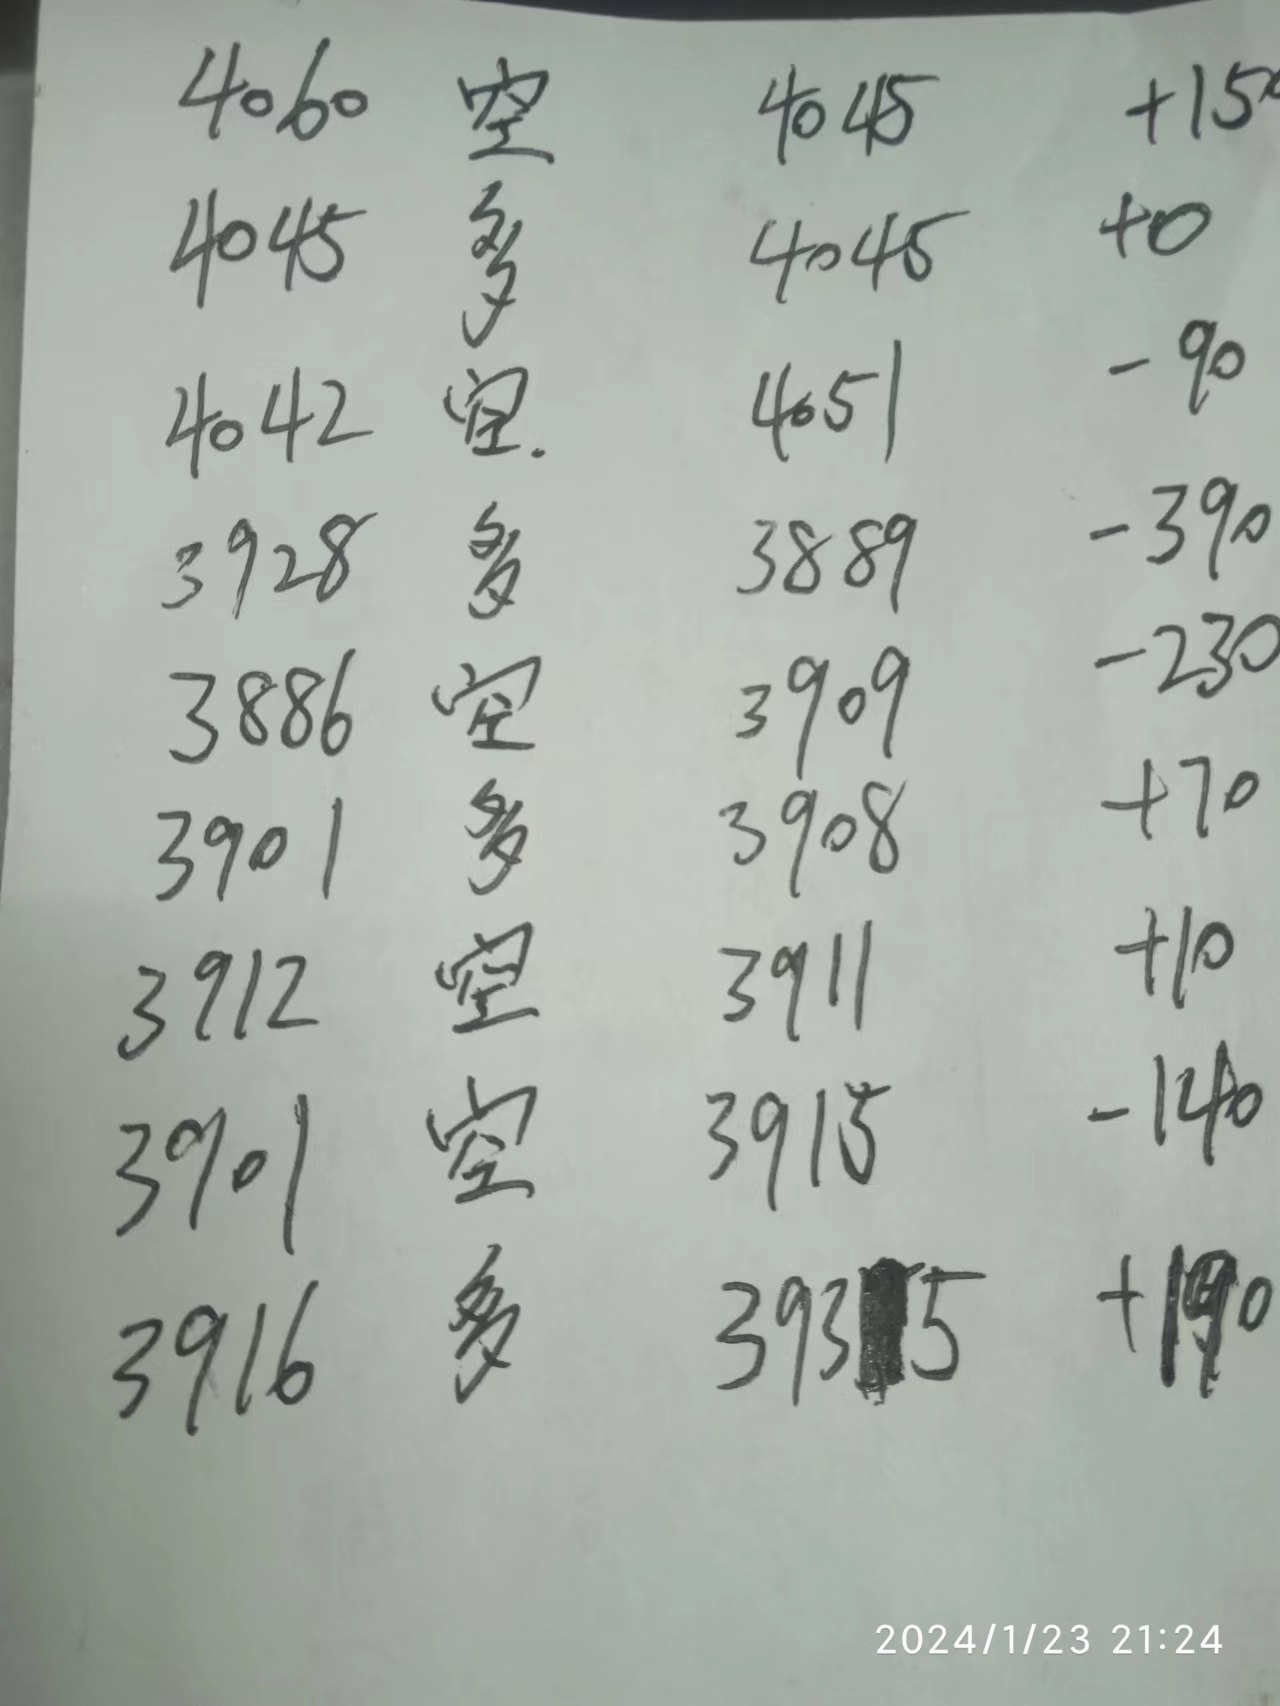 4060 空 4045 +150
4045 多 4045 +0
4042 空. 4051 -90
3928 多 3889 -390
3886 空 3909 -230
3901 多 3908 +70
3912 空 3911 +10
3901 空 3915 -140
3916 多 3935 +190
2024/1/23 21:24